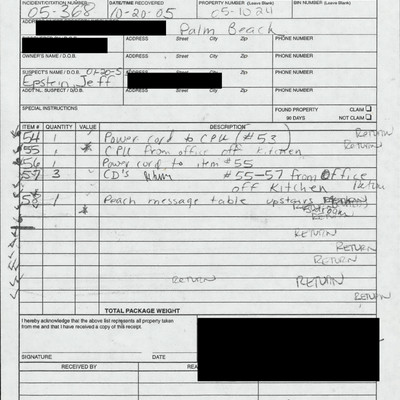 INCIDENT/CITATION NUMBER DATE/TIME RECOVERED PROPERTY NUMBER (Leave Blank) BIN NUMBER (Leave Blank)
05-368 10-20-05 05-1024
ADDRESS Street City Zip PHONE NUMBER
Palm Beach
ADDRESS Street City Zip PHONE NUMBER
OWNER'S NAME / D.O.B. ADDRESS Street City Zip PHONE NUMBER
SUSPECT'S NAME / D.O.B. ADDRESS Street City Zip PHONE NUMBER
Epstein, Jeff
ADDTNL. SUSPECT / D.O.B. ADDRESS Street City Zip PHONE NUMBER
SPECIAL INSTRUCTIONS FOUND PROPERTY CLAIM
90 DAYS NOT CLAIM
ITEM # QUANTITY VALUE DESCRIPTION
54 1 Power cord to CPU (#53) RETURN
55 1 CPU from office off Kitchen RETURN
56 1 Power cord to item #55
57 3 CD's #55-57 from Office
off Kitchen Return
58 1 Peach message table upstairs RETURN
RETURN
RETURN
RETURN
RETURN
RETURN RETURN
RETURN
TOTAL PACKAGE WEIGHT
I hereby acknowledge that the above list represents all property taken
from me and that I have received a copy of this receipt.
SIGNATURE DATE
RECEIVED BY